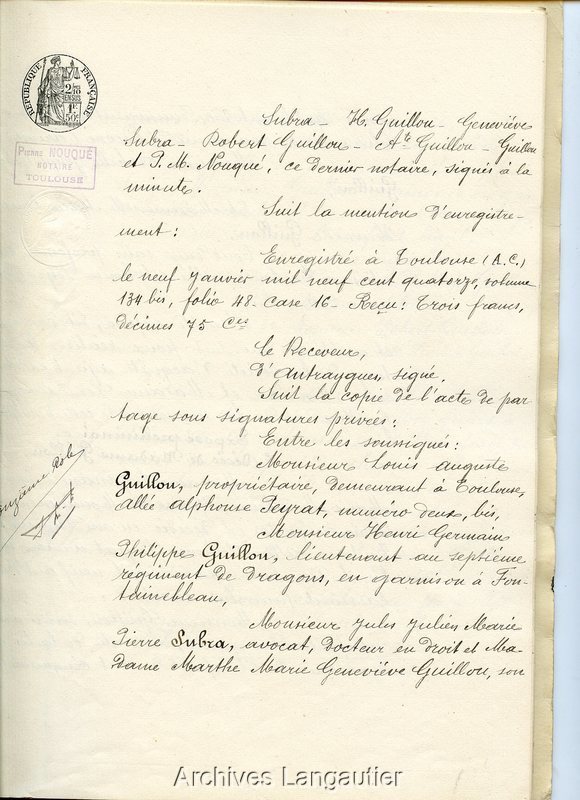 RÉPUBLIQUE FRANÇAISE
2/10 EN SUS
1F 50c
PIERRE NOUQUÉ
NOTAIRE
TOULOUSE
Subra - H. Guillou - Geneviève
Subra - Robert Guillou - Ate Guillou - Guillou
et P. M. Nouqué, ce dernier notaire, signés à la
minute.
Suit la mention d'enregistre-
ment :
Enregistré à Toulouse (A.C.)
le neuf janvier mil neuf cent quatorze, volume
134 bis, folio 48 - case 16 - Reçu : Trois francs,
décimes 75 Ces
Le Receveur,
d'Antraygues, signé.
Suit la copie de l'acte de par
tage sous signatures privées :
Entre les soussignés :
Monsieur Louis Auguste
Guillou, propriétaire, demeurant à Toulouse,
allée Alphonse Peyrat, numéro deux, bis,
Monsieur Henri Germain
Philippe Guillou, lieutenant au septième
régiment de dragons, en garnison à Fon-
tainebleau,
Monsieur Jules Julien Marie
Pierre Subra, avocat, docteur en droit et Ma-
dame Marthe Marie Geneviève Guillou, son
Archives Langautier